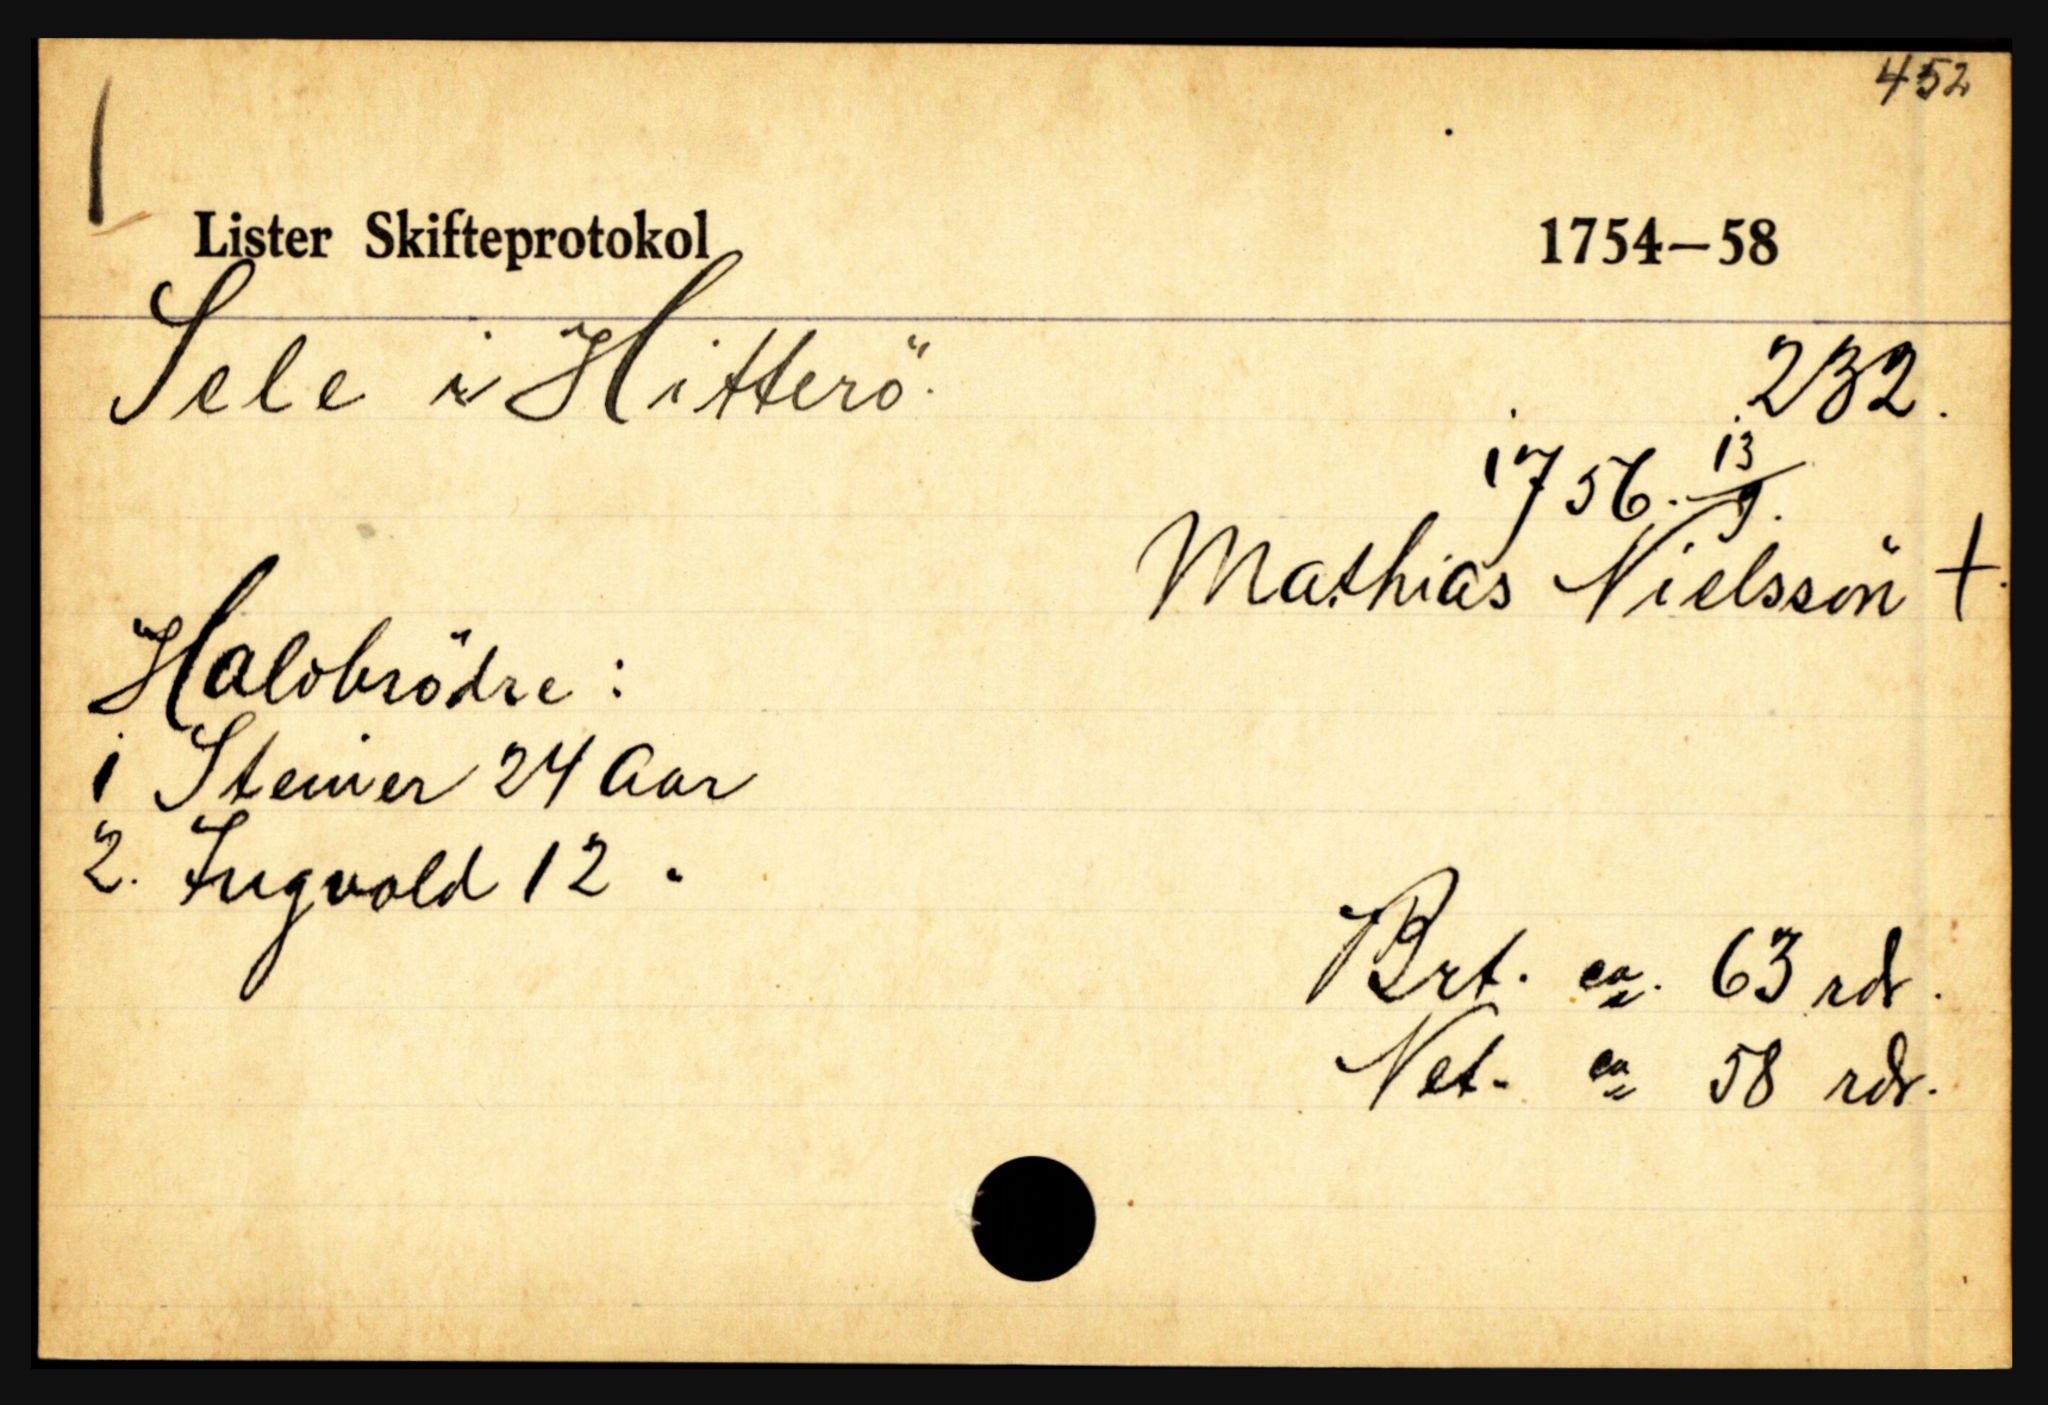 452
Lister Skifteprotokol 1754—58
Sele i Hitterö.
232.
1756. 13/9.
Mathias Nielssön +.
Halvbrödre:
1 Steiner 24 Aar
2. Ingvold 12 "
Brt. ca. 63 rdr.
Net. ca 58 rdr.